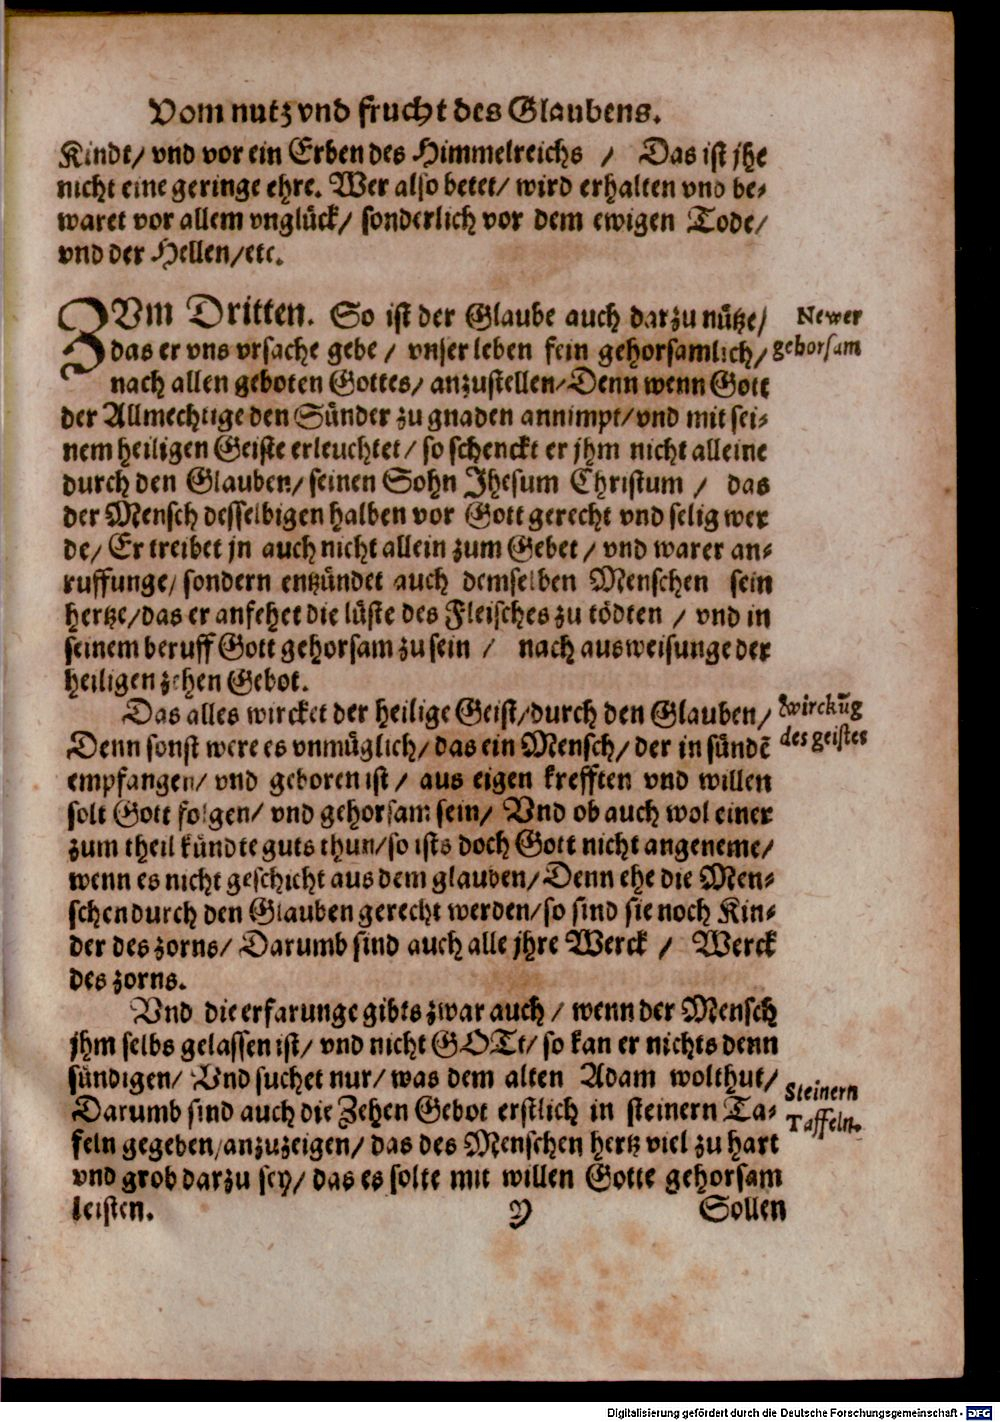 Vom nutz vnd frucht des Glaubens.
Kindt/ vnd vor ein Erben des Himmelreichs / Das ist jhe
nicht eine geringe ehre. Wer also betet/ wird erhalten vnd be-
waret vor allem vnglück/ sonderlich vor dem ewigen Tode/
vnd der Hellen/etc.
ZVm Dritten. So ist der Glaube auch darzu nütze/
das er vns vrsache gebe / vnser leben fein gehorsamlich/
nach allen geboten Gottes/ anzustellen/Denn wenn Gott
der Allmechtige den Sünder zu gnaden annimpt/vnd mit sei-
nem heiligen Geiste erleuchtet/ so schenckt er jhm nicht alleine
durch den Glauben/ seinen Sohn Jhesum Christum / das
der Mensch desselbigen halben vor Gott gerecht vnd selig wer
de/ Er treibet jn auch nicht allein zum Gebet / vnd warer an-
ruffunge/ sondern entzündet auch demselben Menschen sein
hertze/das er anfehet die lüste des Fleisches zu tödten / vnd in
seinem beruff Gott gehorsam zu sein / nach ausweisunge der
heiligen zehen Gebot.
Das alles wircket der heilige Geist/durch den Glauben/
Denn sonst were es vnmüglich/ das ein Mensch/ der in sündē
empfangen/ vnd geboren ist / aus eigen krefften vnd willen
solt Gott folgen/ vnd gehorsam sein/ Vnd ob auch wol einer
zum theil kündte guts thun/so ists doch Gott nicht angeneme/
wenn es nicht geschicht aus dem glauben/ Denn ehe die Men-
schen durch den Glauben gerecht werden/so sind sie noch Kin-
der des zorns/ Darumb sind auch alle jhre Werck / Werck
des zorns.
Vnd die erfarunge gibts zwar auch / wenn der Mensch
jhm selbs gelassen ist/ vnd nicht GOTt/ so kan er nichts denn
sündigen/ Vnd suchet nur/ was dem alten Adam wolthut/
Darumb sind auch die Zehen Gebot erstlich in steinern Ta-
feln gegeben/anzuzeigen/ das des Menschen hertz viel zu hart
vnd grob darzu sey/ das es solte mit willen Gotte gehorsam
leisten.
Y
Sollen
Newer
gehorsam
wirckūg
des geistes
Steinern
Taffeln.
Digitalisierung gefördert durch die Deutsche Forschungsgemeinschaft - DFG